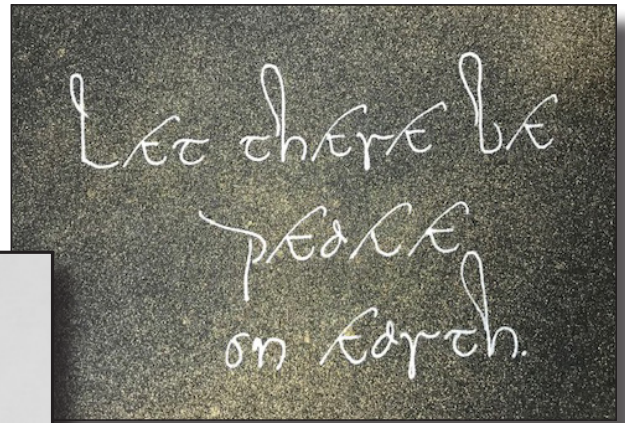 Let there be
peace
on earth.